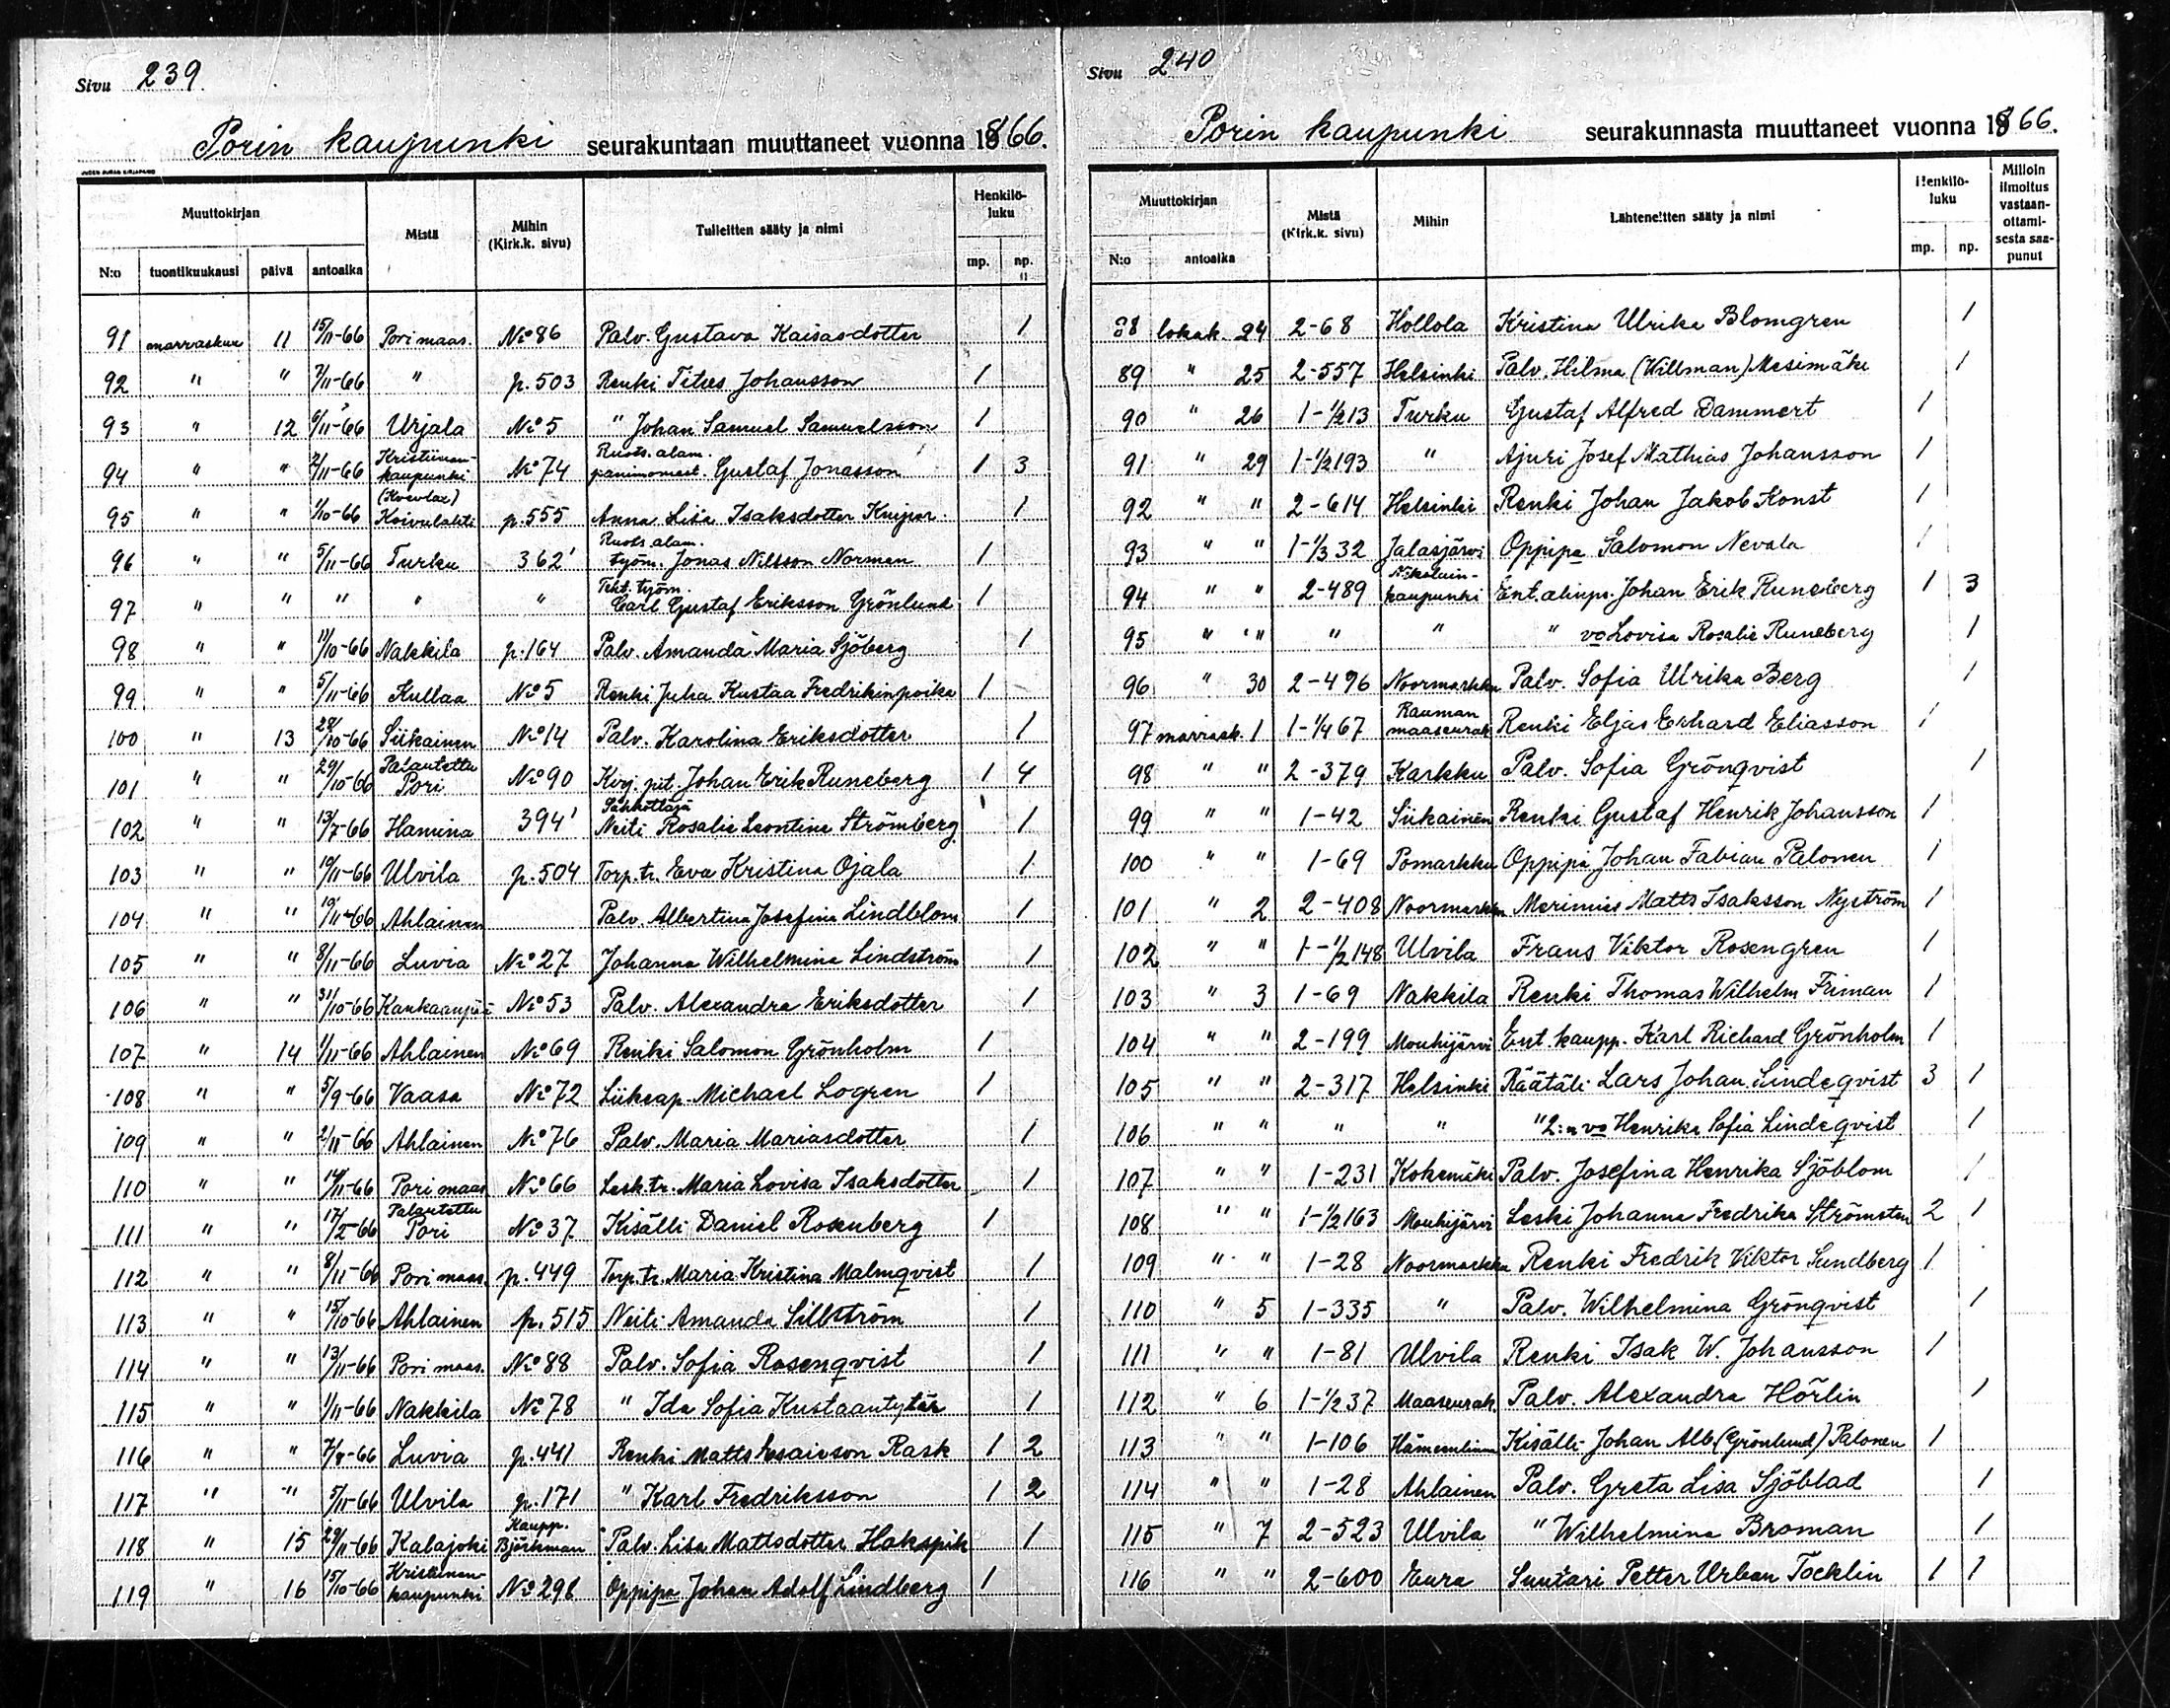 Sivu 239.
Porin kaupunki seurakuntaan muuttaneet vuonna 1866.
Muuttokirjan Mistä Mihin (Kirk.k. sivu) Tulleitten sääty ja nimi Henkilö-luku
N:o tuontikuukausi päivä antoaika mp. np.
91 marraskuu 11 15/11-66 Pori maas. No 86 Palv. Gustava Kaisasdotter 1
92 " " 7/11-66 " p. 503 Renki Titus Johansson 1
93 " 12 6/11-66 Urjala No 5 " Johan Samuel Samuelsson 1
94 " " 2/11-66 Kristiinan-kaupunki No 74 Ruots. alam. panimomest. Gustaf Jonasson 1 3
95 " " 1/10-66 (Kvevlax) Koivulahti p. 555 Anna Lisa Isaksdotter Knipar 1
96 " " 5/11-66 Turku 362' Ruots. alam. työm. Jonas Nilsson Norman 1
97 " " " " " Teht. työm. Carl Gustaf Eriksson Grönlund 1
98 " " 11/10-66 Nakkila p. 164 Palv. Amanda Maria Sjöberg 1
99 " " 5/11-66 Kullaa No 5 Renki Juha Kustaa Fredrikinpoika 1
100 " 13 28/10-66 Siikainen No 14 Palv. Karolina Eriksdotter 1
101 " " 29/10-66 Palautettu Pori No 90 Kirj. pit. Johan Erik Runeberg 1 4
102 " " 13/7-66 Hamina 394' Sähköttäjä Neiti Rosalie Leontine Strömberg 1
103 " " 10/11-66 Ulvila p. 504 Torp. tr. Eva Kristina Ojala 1
104 " " 10/11-66 Ahlainen Palv. Albertina Josefina Lindblom 1
105 " " 8/11-66 Luvia No 27 Johanna Wilhelmina Lindström 1
106 " " 31/10-66 Kankaanpää No 53 Palv. Alexandra Eriksdotter 1
107 " 14 1/11-66 Ahlainen No 69 Renki Salomon Grönholm 1
108 " " 5/9-66 Vaasa No 72 Liikeap. Michael Logren 1
109 " " 2/11-66 Ahlainen No 76 Palv. Maria Mariasdotter 1
110 " " 14/11-66 Pori maas No 66 Lesk. tr. Maria Lovisa Isaksdotter 1
111 " " 17/2-66 Palautettu Pori No 37 Kisälli Daniel Rosenberg 1
112 " " 8/11-66 Pori maas. p. 449 Torp. tr. Maria Kristina Malmqvist 1
113 " " 15/10-66 Ahlainen p. 515 Neiti Amanda Sillström 1
114 " " 13/11-66 Pori maas. No 88 Palv. Sofia Rosenqvist 1
115 " " 1/11-66 Nakkila No 78 " Ida Sofia Kustaantytär 1
116 " " 7/8-66 Luvia p. 441 Renki Matts Esaiesson Rask 1 2
117 " " 5/11-66 Ulvila p. 171 " Karl Fredriksson 1 2
118 " 15 29/11-66 Kalajoki Kaupp. Björkman Palv. Lisa Mattsdotter Hakspik 1
119 " 16 15/10-66 Kristiinan-kaupunki No 298 Oppipa Johan Adolf Lindberg 1
Sivu 240
Porin kaupunki seurakunnasta muuttaneet vuonna 1866.
Muuttokirjan Mistä (Kirk.k. sivu) Mihin Lähteneitten sääty ja nimi Henkilö-luku Milloin ilmoitus vastaan-ottami-sesta saa-punut
N:o antoaika mp. np.
88 lokak. 24 2-68 Hollola Kristina Ulrika Blomgren 1
89 " 25 2-557 Helsinki Palv. Hilma (Willman) Mesimäki 1
90 " 26 1-1/213 Turku Gustaf Alfred Dammert 1
91 " 29 1-1/2193 " Ajuri Josef Mathias Johansson 1
92 " " 2-614 Helsinki Renki Johan Jakob Konst 1
93 " " 1-1/332 Jalasjärvi Oppipa Salomon Nevala 1
94 " " 2-489 Nikolain-kaupunki Ent. aliups. Johan Erik Runeberg 1 3
95 " " " " " vo Lovisa Rosalie Runeberg 1
96 " 30 2-496 Noormarkku Palv. Sofia Ulrika Berg 1
97 marrask. 1 1-1/467 Rauman maaseurak Renki Eljas Erhard Eliasson 1
98 " " 2-379 Karkku Palv. Sofia Grönqvist 1
99 " " 1-42 Siikainen Renki Gustaf Henrik Johansson 1
100 " " 1-69 Pomarkku Oppipa Johan Fabian Palonen 1
101 " 2 2-408 Noormarkku Merimies Matts Isaksson Nyström 1
102 " " 1-1/2148 Ulvila Frans Viktor Rosengren 1
103 " 3 1-69 Nakkila Renki Thomas Wilhelm Friman 1
104 " " 2-199 Mouhijärvi Ent. kaupp. Karl Richard Grönholm 1
105 " " 2-317 Helsinki Räätäli Lars Johan Lindeqvist 3 1
106 " " " " " 2:n vo Henrika Sofia Lindeqvist 1
107 " " 1-231 Kokemäki Palv. Josefina Henrika Sjöblom 1
108 " " 1-1/2163 Mouhijärvi Leski Johanna Fredrika Strömsten 2 1
109 " " 1-28 Noormarkku Renki Fredrik Viktor Sundberg 1
110 " 5 1-335 " Palv. Wilhelmina Grönqvist 1
111 " " 1-81 Ulvila Renki Isak W. Johansson 1
112 " 6 1-1/237 Maaseurak. Palv. Alexandra Hörlin 1
113 " " 1-106 Hämeenlinna Kisälli Johan Alb. (Grönlund) Palonen 1
114 " " 1-28 Ahlainen Palv. Greta Lisa Sjöblad 1
115 " 7 2-523 Ulvila " Wilhelmina Broman 1
116 " " 2-600 Eura Suutari Petter Urban Töcklin 1 1